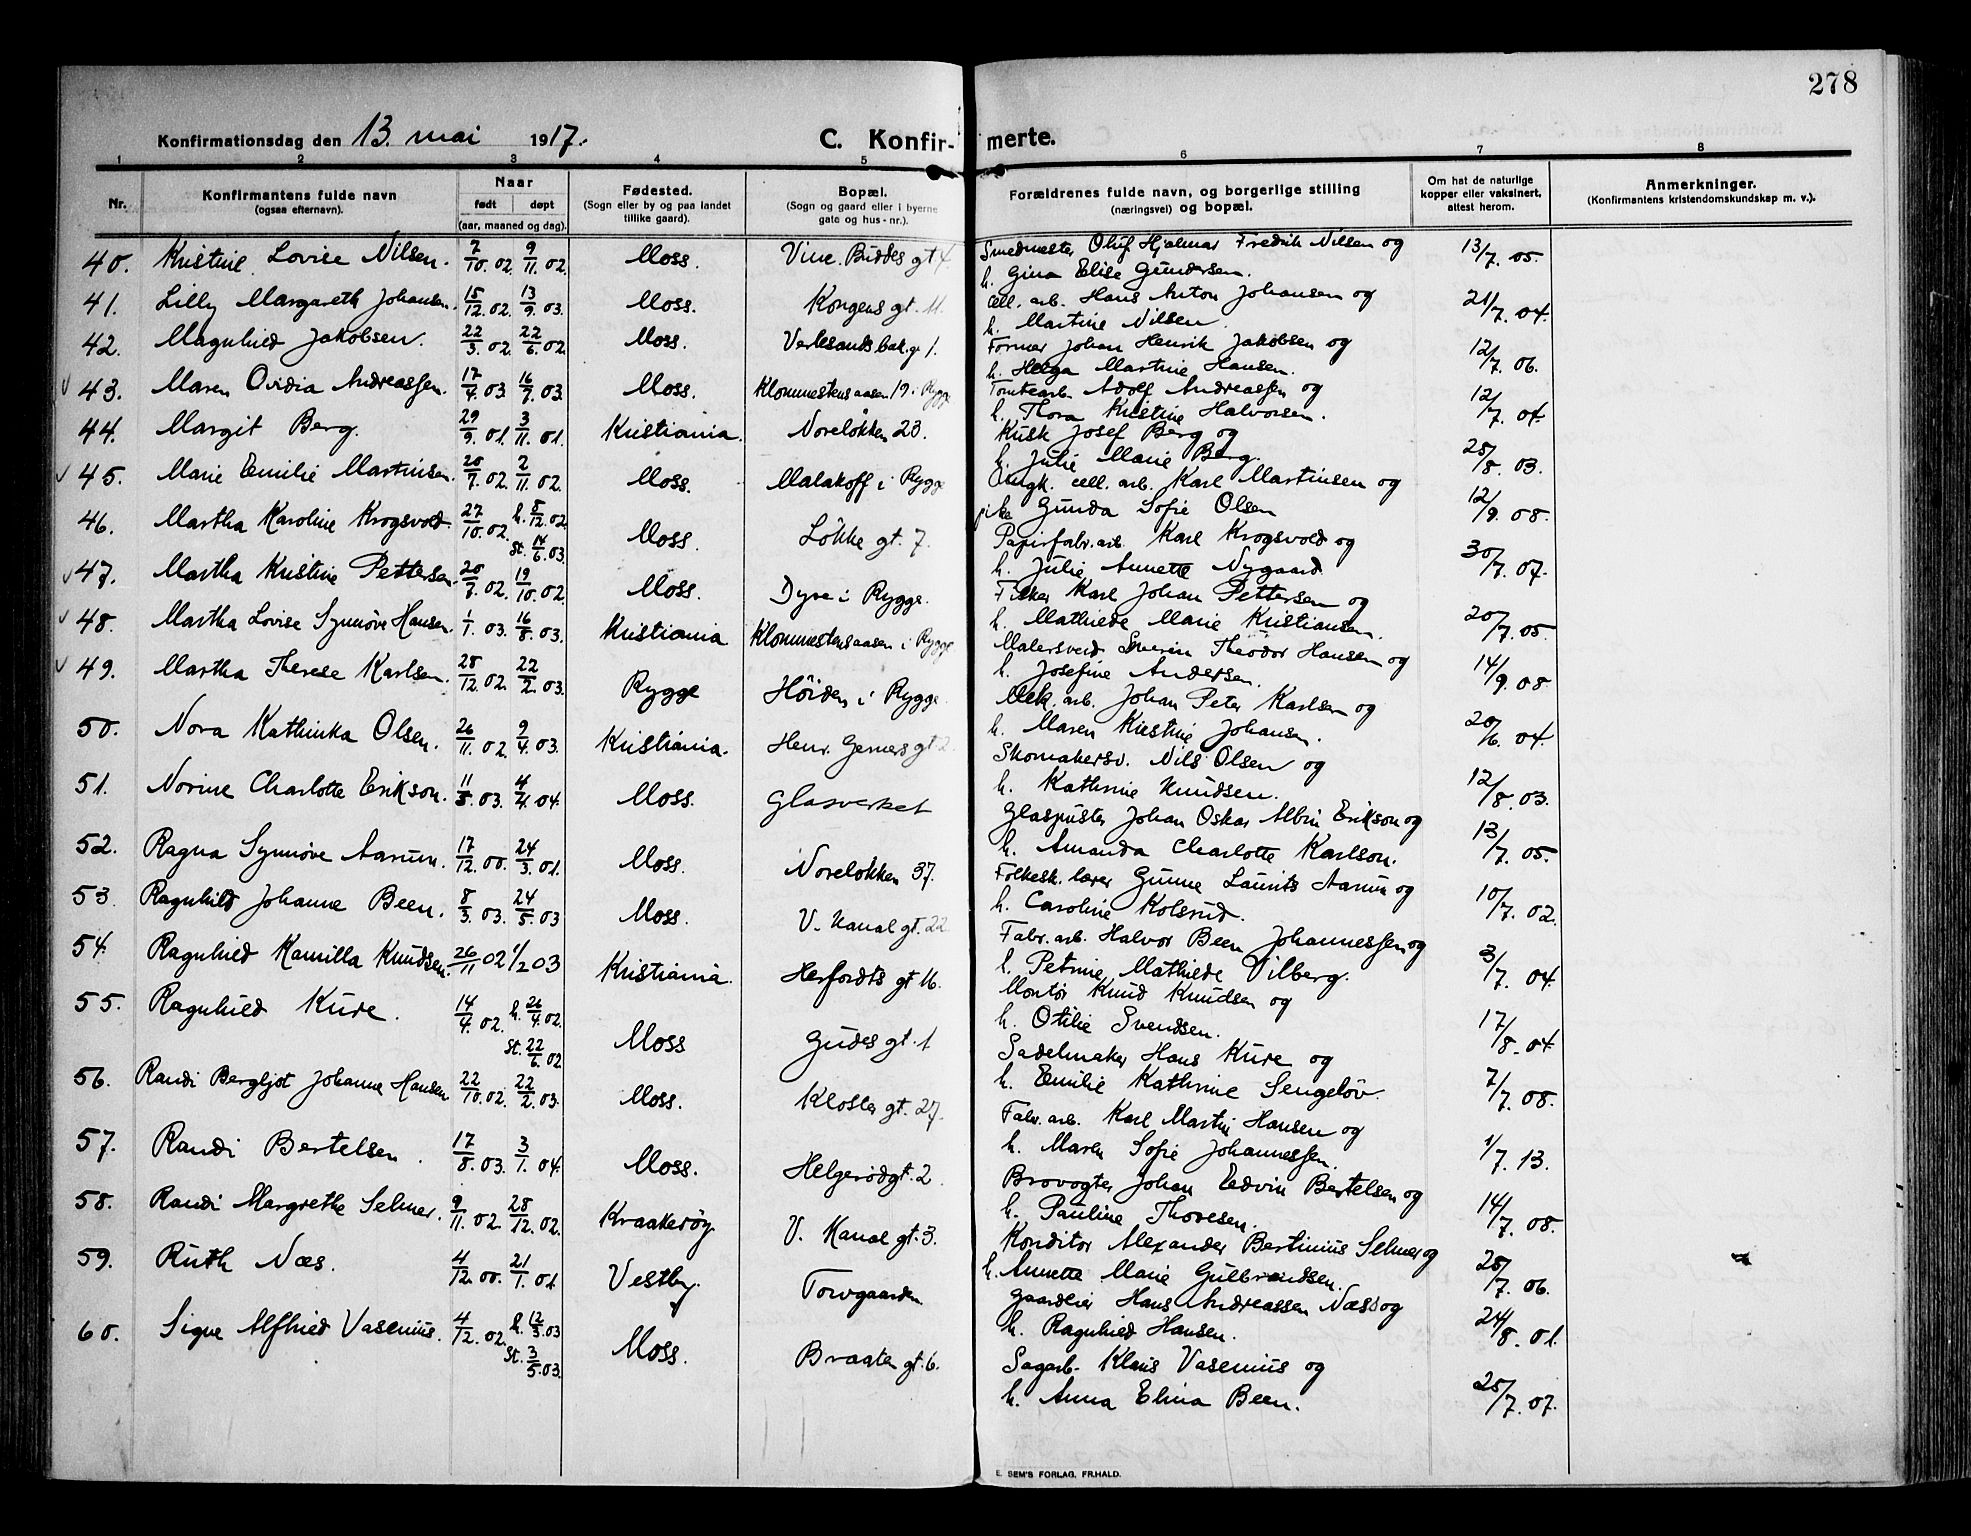 278
Konfirmationsdag den 13. mai 1917.
C. Konfir- merte.
1 2 3 4 5 6 7 8
Nr. Konfirmantens fulde navn (ogsaa efternavn). Naar født døpt (aar, maaned og dag). Fødested. (Sogn eller by og paa landet tillike gaard). Bopæl. (Sogn og gaard eller i byerne gate og hus-nr.). Forældrenes fulde navn, og borgerlige stilling (næringsvei) og bopæl. Om hat de naturlige kopper eller vaksinert, attest herom. Anmerkninger. (Konfirmantens kristendomskundskap m. v.).
40. Kristine Lovise Nilsen. 7/10.02. 9/11.02. Moss. Vinc. Buddes gt 4. Smedmester Oluf Hjalmar Fredrik Nilsen og 13/7.05.
h. Gina Elise Gundersen.
41. Lilly Margareth Johansen. 15/12.02. 13/9.03. Moss. Kongens gt. 11. Cell. arb. Hans Anton Johansen og 21/7.04.
h. Martine Nilsen.
42. Magnhild Jakobsen. 22/3.02. 22/6.02. Moss. Verlesands bak.g 1. Former Johan Henrik Jakobsen og 12/7.06.
h. Helga Martine Hansen.
v 43. Maren Ovidia Andreassen. 17/4.03. 16/7.03. Moss. Klommestensaasen 19 i Rygge Tomtearb. Adolf Andreassen og 12/7.04.
h. Thora Kristine Halvorsen.
44. Margit Berg. 29/9.01. 3/11.01. Kristiania. Noreløkken 23. Kusk Josef Berg og
h. Julie Marie Berg. 25/8.03.
v 45. Marie Emilie Martinsen. 20/7.02. 2/11.02. Moss. Malakoff i Rygge Ungk. cell. arb. Karl Martinsen og
pike Gunda Sofie Olsen 12/9.08.
46. Martha Karoline Krogsvold. 27/10.02. h. 8/12.02. St. 14/6.03. Moss. Løkke gt. 7. Papirfabr.arb. Karl Krogsvold og
h. Julie Annette Nygaard. 30/7.07.
v 47. Martha Kristine Pettersen. 20/7.02. 19/10.02. Moss. Dyre i Rygge. Fisker Karl Johan Pettersen og
h. Mathilde Marie Kristiansen. 20/7.05.
v 48. Martha Lovise Synnøve Hansen. 1/1.03. 16/8.03. Kristiania Klommestensaasen i Rygge Malersvend Severin Theodor Hansen og
h. Josefine Andersen. 14/9.08.
v 49. Martha Therese Karlsen. 28/12.02. 22/2.03. Rygge Høiden i Rygge Mek. arb. Johan Peter Karlsen og
h. Maren Kristine Johansen. 20/6.04.
50. Nora Kathinka Olsen. 26/11.02. 9/4.03. Kristiania. Henr. Gerners gt 2. Skomakersv. Nils Olsen og
h. Kathrine Knudsen. 12/8.03.
51. Norine Charlotte Erikson. 11/5.03. 4/4.04. Moss. Glasverket Glaspuster Johan Oskar Albin Erikson og
h. Amanda Charlotte Karlson. 13/7.05.
52. Ragna Synnøve Aarum. 17/12.00. 24/3.01. Moss. Noreløkken 37. Folkesk. lærer Gunne Laurits Aarum og
h. Caroline Kolsrud. 10/7.02.
53. Ragnhild Johanne Been. 8/3.03. 24/5.03 Moss. V. Kanal gt. 22. Fabr. arb. Halvor Been Johannessen og
h. Petrine Mathilde Vilberg. 3/7.04.
54. Ragnhild Kamilla Knudsen. 26/11 02 1/2 03 Kristiania. Herfordts gt 16. Montør Knud Knudsen og
h. Otilie Svendsen. 17/8.04.
55. Ragnhild Kure. 14/4.02. h. 26/4.02. St. 22/6.02. Moss Gudes gt. 1 Sadelmaker Hans Kure og
h. Emilie Kathrine Sengeløv. 7/7.08.
56. Randi Bergljot Johanne Hansen 22/10.02. 22/2.03. Moss. Kloster gt. 27. Fabr. arb. Karl Martin Hansen og
h. Maren Sofie Johannessen. 1/7.13.
57. Randi Bertelsen. 17/8.03. 3/1.04. Moss. Helgerødgt. 2. Brovogter Johan Edvin Bertelsen og
h. Pauline Thoresen. 14/7.08.
58. Randi Margrethe Selmer. 9/11.02. 28/12.02. Kraakerøy. V. Kanal gt. 3. Konditor Alexander Bertinius Selmer og
h. Annette Marie Gulbrandsen. 28/7.06.
59. Ruth Næs. 4/12.00. 21/1.01. Vestby. Torvgaarden Gaardeier Hans Andreassen Næss og
h. Ragnhild Hansen. 24/8.01.
60. Signe Alfhild Vasenius. 4/12.02. h. 12/3.03 St. 3/5.03. Moss. Braaten gt. 6. Sagarb. Klaus Vasenius og
h. Anna Elina Been. 25/7.07.
E. SEM'S FORLAG, FR.HALD.